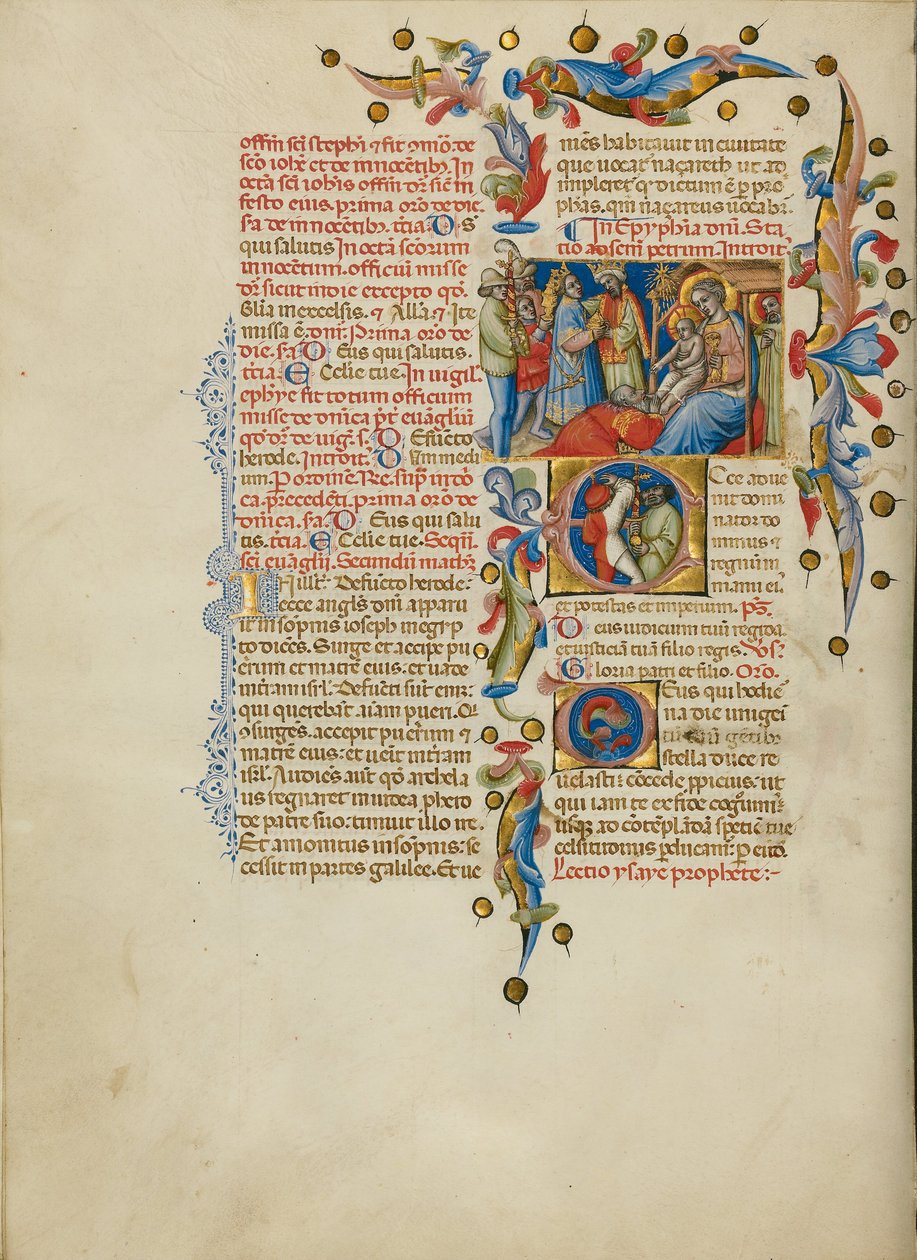 offm̄ sc̄i stephī ⁊ fit ꝯmō. de
sc̄o ioh̄e et de innocētibꝫ. In
octā sc̄i ioh̄is offm̄ dr̄ sic̄ in
festo eius. prima or̄o de die.
s̄a de innocētibꝫ. t̄cia. Ds̄
qui salutis In octā sc̄orum
innocētum. officiū misse
dr̄ sicut in die excepto qō.
Gl̄ia in excelsis. ⁊ All̄a. ⁊ Ite
missa ē. dn̄i. Prima or̄o de
die. s̄a. Deus qui salutis.
t̄cia. Ecclie tue. In uigil̄
ephȳe fit totum officium
misse de dn̄ica p̄t euāgliū
qō dr̄ de uig̓. s. Defūcto
herode. Introit. Dum medi
um. P ordinē. Re. sup̄ in dō
ca. p̄cedēti. prima or̄o de
dōnica. s̄a. Deus qui salu
tis. t̄cia. Ecclie tue. Sequī
sc̄i euāglii. Secundū math̄
In illr̄. Defūcto herode:
ecce angl̄s dn̄i apparu
it in sōpnis ioseph in egyp
to dicēs. Surge et accipe pu
erum et matrē eius. et uade
in t̄ram isrl̄. Defūcti sūt eni
qui querebāt aīam pueri. Q̄
ꝯsurgēs. accepit puerum ⁊
matrē eius: et uēit in t̄ram
isrl̄. Audiēs aūt qō archela
us regnaret in iudea p̱ hero
de patre suo: timuit illo ire.
Et amonitus in sōpnis: se
cessit in partes galilee. Et ue
niēs habitauit in ciuitate
que uocat̄ naçareth ut ad
impleret̄ qō dictum ē ꝑ pro
phās. qm̄ naçareus uocabit̄.
In Epyphīa dn̄i. Sta
tio ad sc̄m petrum. Introit̄
Ecce adue
nit domi
nator do
minus ⁊
regnū in
manu ei
et potestas et imperium. Ps̄.
Deus iudicium tuū regi da
et iusticiā tuā filio regis. Vs̄
Gloria patri et filio. Or̄o.
Deus qui hodie
na die unigēi
tū tuū gētibꝫ
stella duce re
uelasti: cōcede ꝓpicius. ut
qui iam te ex fide cog̓uim̄
usq̨ ad cōtēplādā speciē tue
celsitudinis ꝑducam̄. P eūd.
Lectio ysaye prophete:-